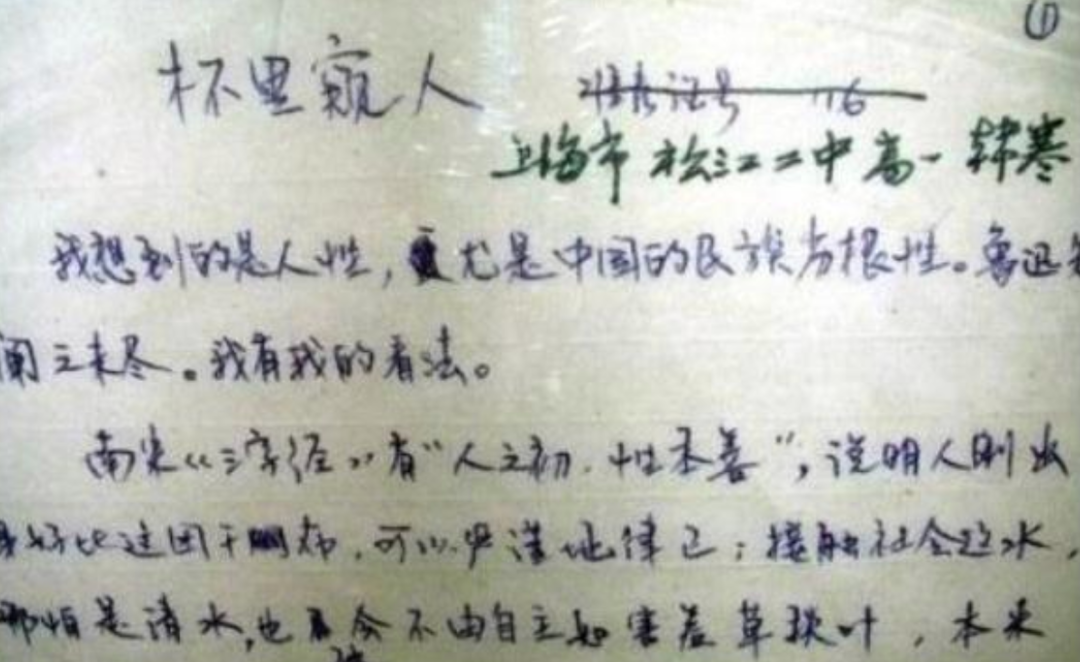 ①
杯里窥人
准考证号 116
上海市 松江二中 高一 韩寒
我想到的是人性，尤是中国的民族劣根性。鲁迅
阐之未尽。我有我的看法。
南宋《三字经》有“人之初，性本善”，说明人刚出
好比这团干布，可以严谨地律己；接触社会这水，
哪怕是清水，也会不由自主如害羞草致叶，本来